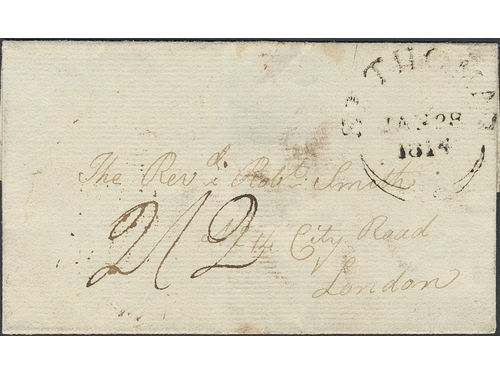 ST THOMAS
JAN 28
1814
The Revd. Robt. Smith
2/2
City Road
London